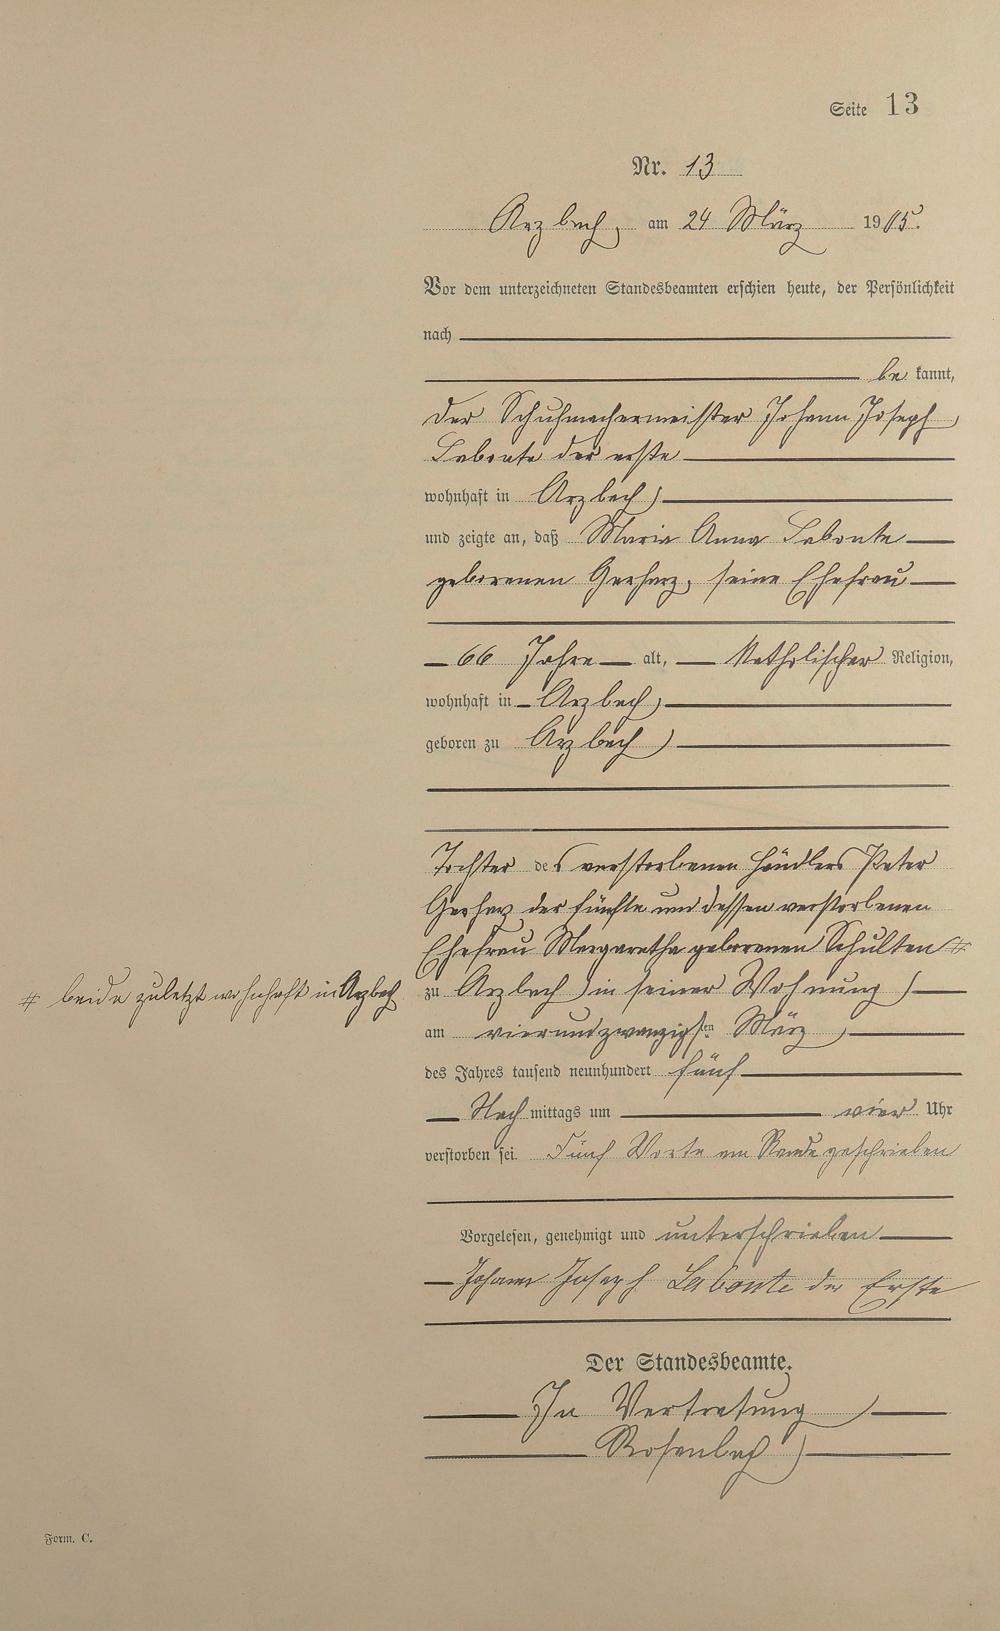 Seite 13
Nr. 13
Arzbach, am 24 März 1905.
Vor dem unterzeichneten Standesbeamten erschien heute, der Persönlichkeit
nach
be kannt,
der Schuhmachermeister Johann Joseph
Labonte der erste
wohnhaft in Arzbach,
und zeigte an, daß Maria Anna Labonte
geborenen Gerharz, seine Ehefrau
66 Jahre alt, katholischer Religion,
wohnhaft in Arzbach,
geboren zu Arzbach,
Tochter des verstorbenen Händlers Peter
Gerharz der fünfte und dessen verstorbenen
Ehefrau Margaretha geborenen Schulten #
# beide zuletzt wohnhaft in Arzbach
zu Arzbach, in seiner Wohnung,
am vierundzwanzigsten März,
des Jahres tausend neunhundert fünf
Nach mittags um vier Uhr
verstorben sei. Fünf Worte am Rande geschrieben
Vorgelesen, genehmigt und unterschrieben
Johann Joseph Labonte der Erste
Der Standesbeamte.
In Vertretung
Rosenbach
Form. C.